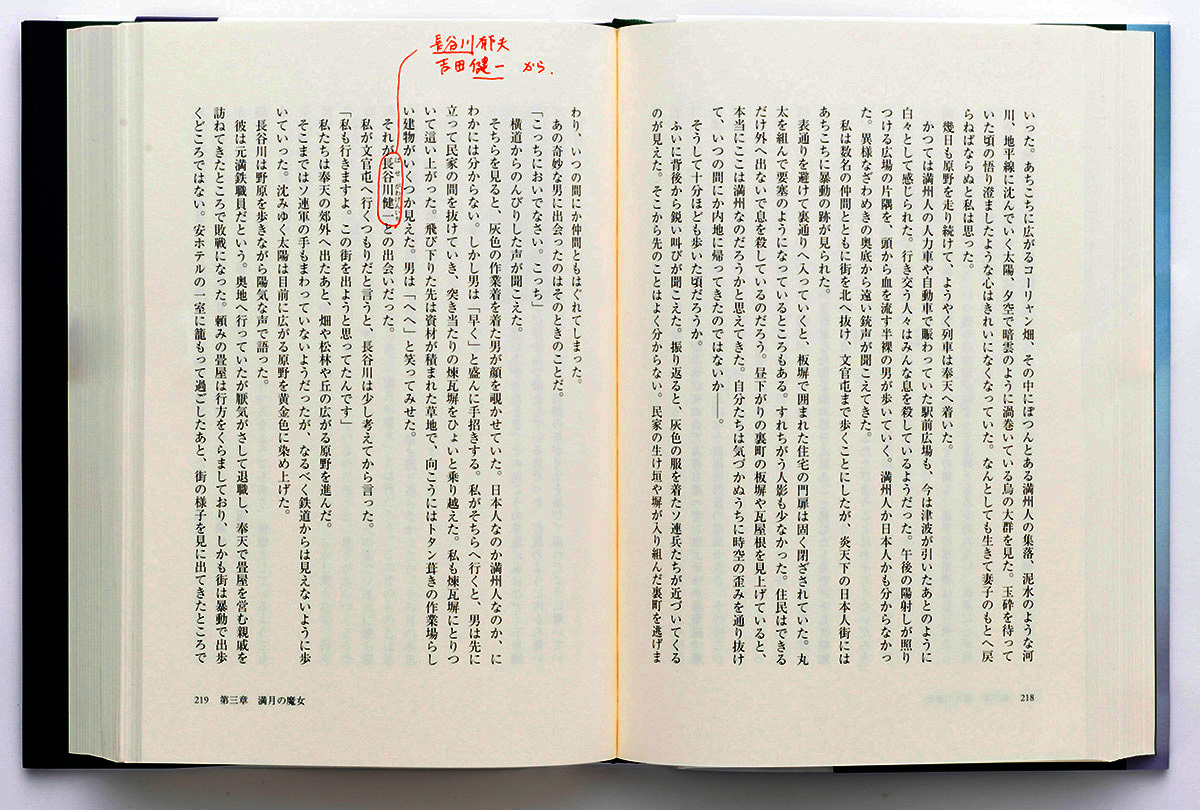 いった。あちこちに広がるコーリャン畑、その中にぽつんとある満州人の集落、泥水のような河
川、地平線に沈んでいく太陽、夕空で暗雲のように渦巻いている鳥の大群を見た。玉砕を待って
いた頃の悟り澄ましたような心はきれいになくなっていた。なんとしても生きて妻子のもとへ戻
らねばならぬと私は思った。
幾日も原野を走り続けて、ようやく列車は奉天へ着いた。
かつては満州人の人力車や自動車で賑わっていた駅前広場も、今は津波が引いたあとのように
白々として感じられた。行き交う人々はみんな息を殺しているようだった。午後の陽射しが照り
つける広場の片隅を、頭から血を流す半裸の男が歩いていく。満州人か日本人かも分からなかっ
た。異様なざわめきの奥底から遠い銃声が聞こえてきた。
私は数名の仲間とともに街を北へ抜け、文官屯まで歩くことにしたが、炎天下の日本人街には
あちこちに暴動の跡が見られた。
表通りを避けて裏通りへ入っていくと、板塀で囲まれた住宅の門扉は固く閉ざされていた。丸
太を組んで要塞のようになっているところもある。すれちがう人影も少なかった。住民はできる
だけ外へ出ないで息を殺しているのだろう。昼下がりの裏町の板塀や瓦屋根を見上げていると、
本当にここは満州なのだろうかと思えてきた。自分たちは気づかぬうちに時空の歪みを通り抜け
て、いつの間にか内地に帰ってきたのではないか――。
そうして十分ほども歩いた頃だろうか。
ふいに背後から鋭い叫びが聞こえた。振り返ると、灰色の服を着たソ連兵たちが近づいてくる
のが見えた。そこから先のことはよく分からない。民家の生け垣や塀が入り組んだ裏町を逃げま
218
長谷川郁夫
吉田健一 から.
わり、いつの間にか仲間ともはぐれてしまった。
あの奇妙な男に出会ったのはそのときのことだ。
「こっちにおいでなさい。こっち」
横道からのんびりした声が聞こえた。
そちらを見ると、灰色の作業着を着た男が顔を覗かせていた。日本人なのか満州人なのか、に
わかには分からない。しかし男は「早く」と盛んに手招きする。私がそちらへ行くと、男は先に
立って民家の間を抜けていき、突き当たりの煉瓦塀をひょいと乗り越えた。私も煉瓦塀にとりつ
いて這い上がった。飛び下りた先は資材が積まれた草地で、向こうにはトタン葺きの作業場らし
い建物がいくつか見えた。男は「へへ」と笑ってみせた。
それが長谷川健一との出会いだった。
はせがわけんいち
私が文官屯へ行くつもりだと言うと、長谷川は少し考えてから言った。
「私も行きますよ。この街を出ようと思ってたんです」
私たちは奉天の郊外へ出たあと、畑や松林や丘の広がる原野を進んだ。
そこまではソ連軍の手もまわっていないようだったが、なるべく鉄道からは見えないように歩
いていった。沈みゆく太陽は目前に広がる原野を黄金色に染め上げた。
長谷川は野原を歩きながら陽気な声で語った。
彼は元満鉄職員だという。奥地へ行っていたが厭気がさして退職し、奉天で畳屋を営む親戚を
訪ねてきたところで敗戦になった。頼みの畳屋は行方をくらましており、しかも街は暴動で出歩
くどころではない。安ホテルの一室に籠もって過ごしたあと、街の様子を見に出てきたところで
219 第三章 満月の魔女